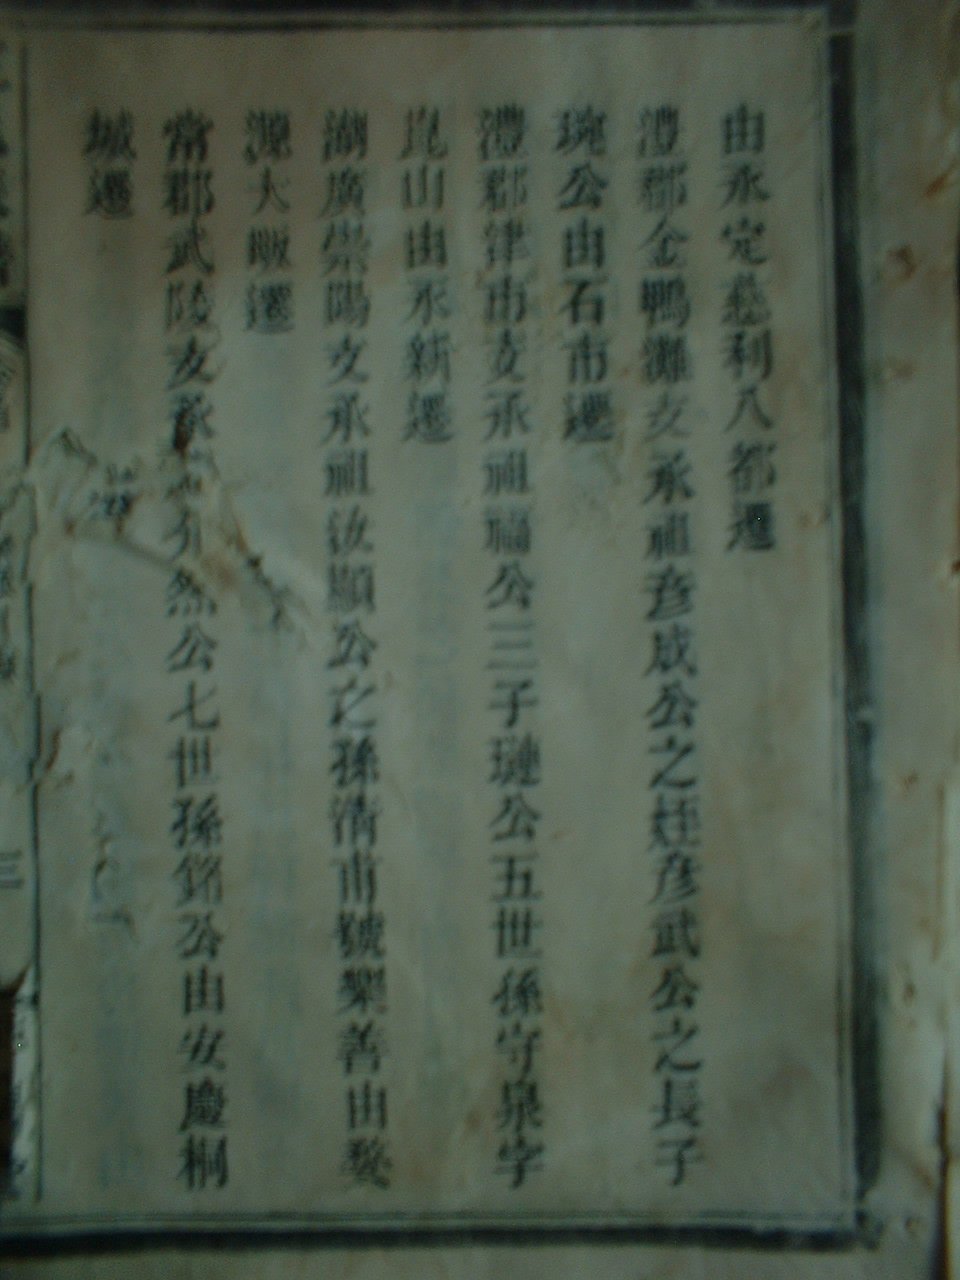 由永定慈利八都遷
澧郡金鴨灘支承祖彦成公之姪彦武公之長子
琬公由石市遷
澧郡津市支承祖福公三子璉公五世孫守泉字
崑山由永新遷
湖廣崇陽支承祖汝顯公之孫清甫號樂善由婺
源大畈遷
常郡武陵支承然公七世孫銘公由安慶桐
城遷
三